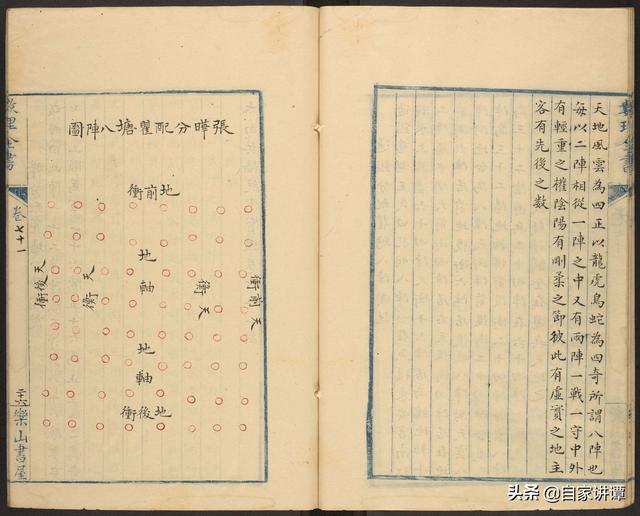 天地風雲為四正以龍虎鳥蛇為四奇所謂八陣也
每以二陣相從一陣之中又有兩陣一戰一守中外
有輕重之權陰陽有剛柔之節彼此有虛實之地主
客有先後之數
張曄分配瞿塘八陣圖
地前衝
天前衝
天衡
地軸
地軸
天衡
天後衝
地後衝
數理全書
卷七十一
二十六
樂山書屋
頭条 @自家讲谭